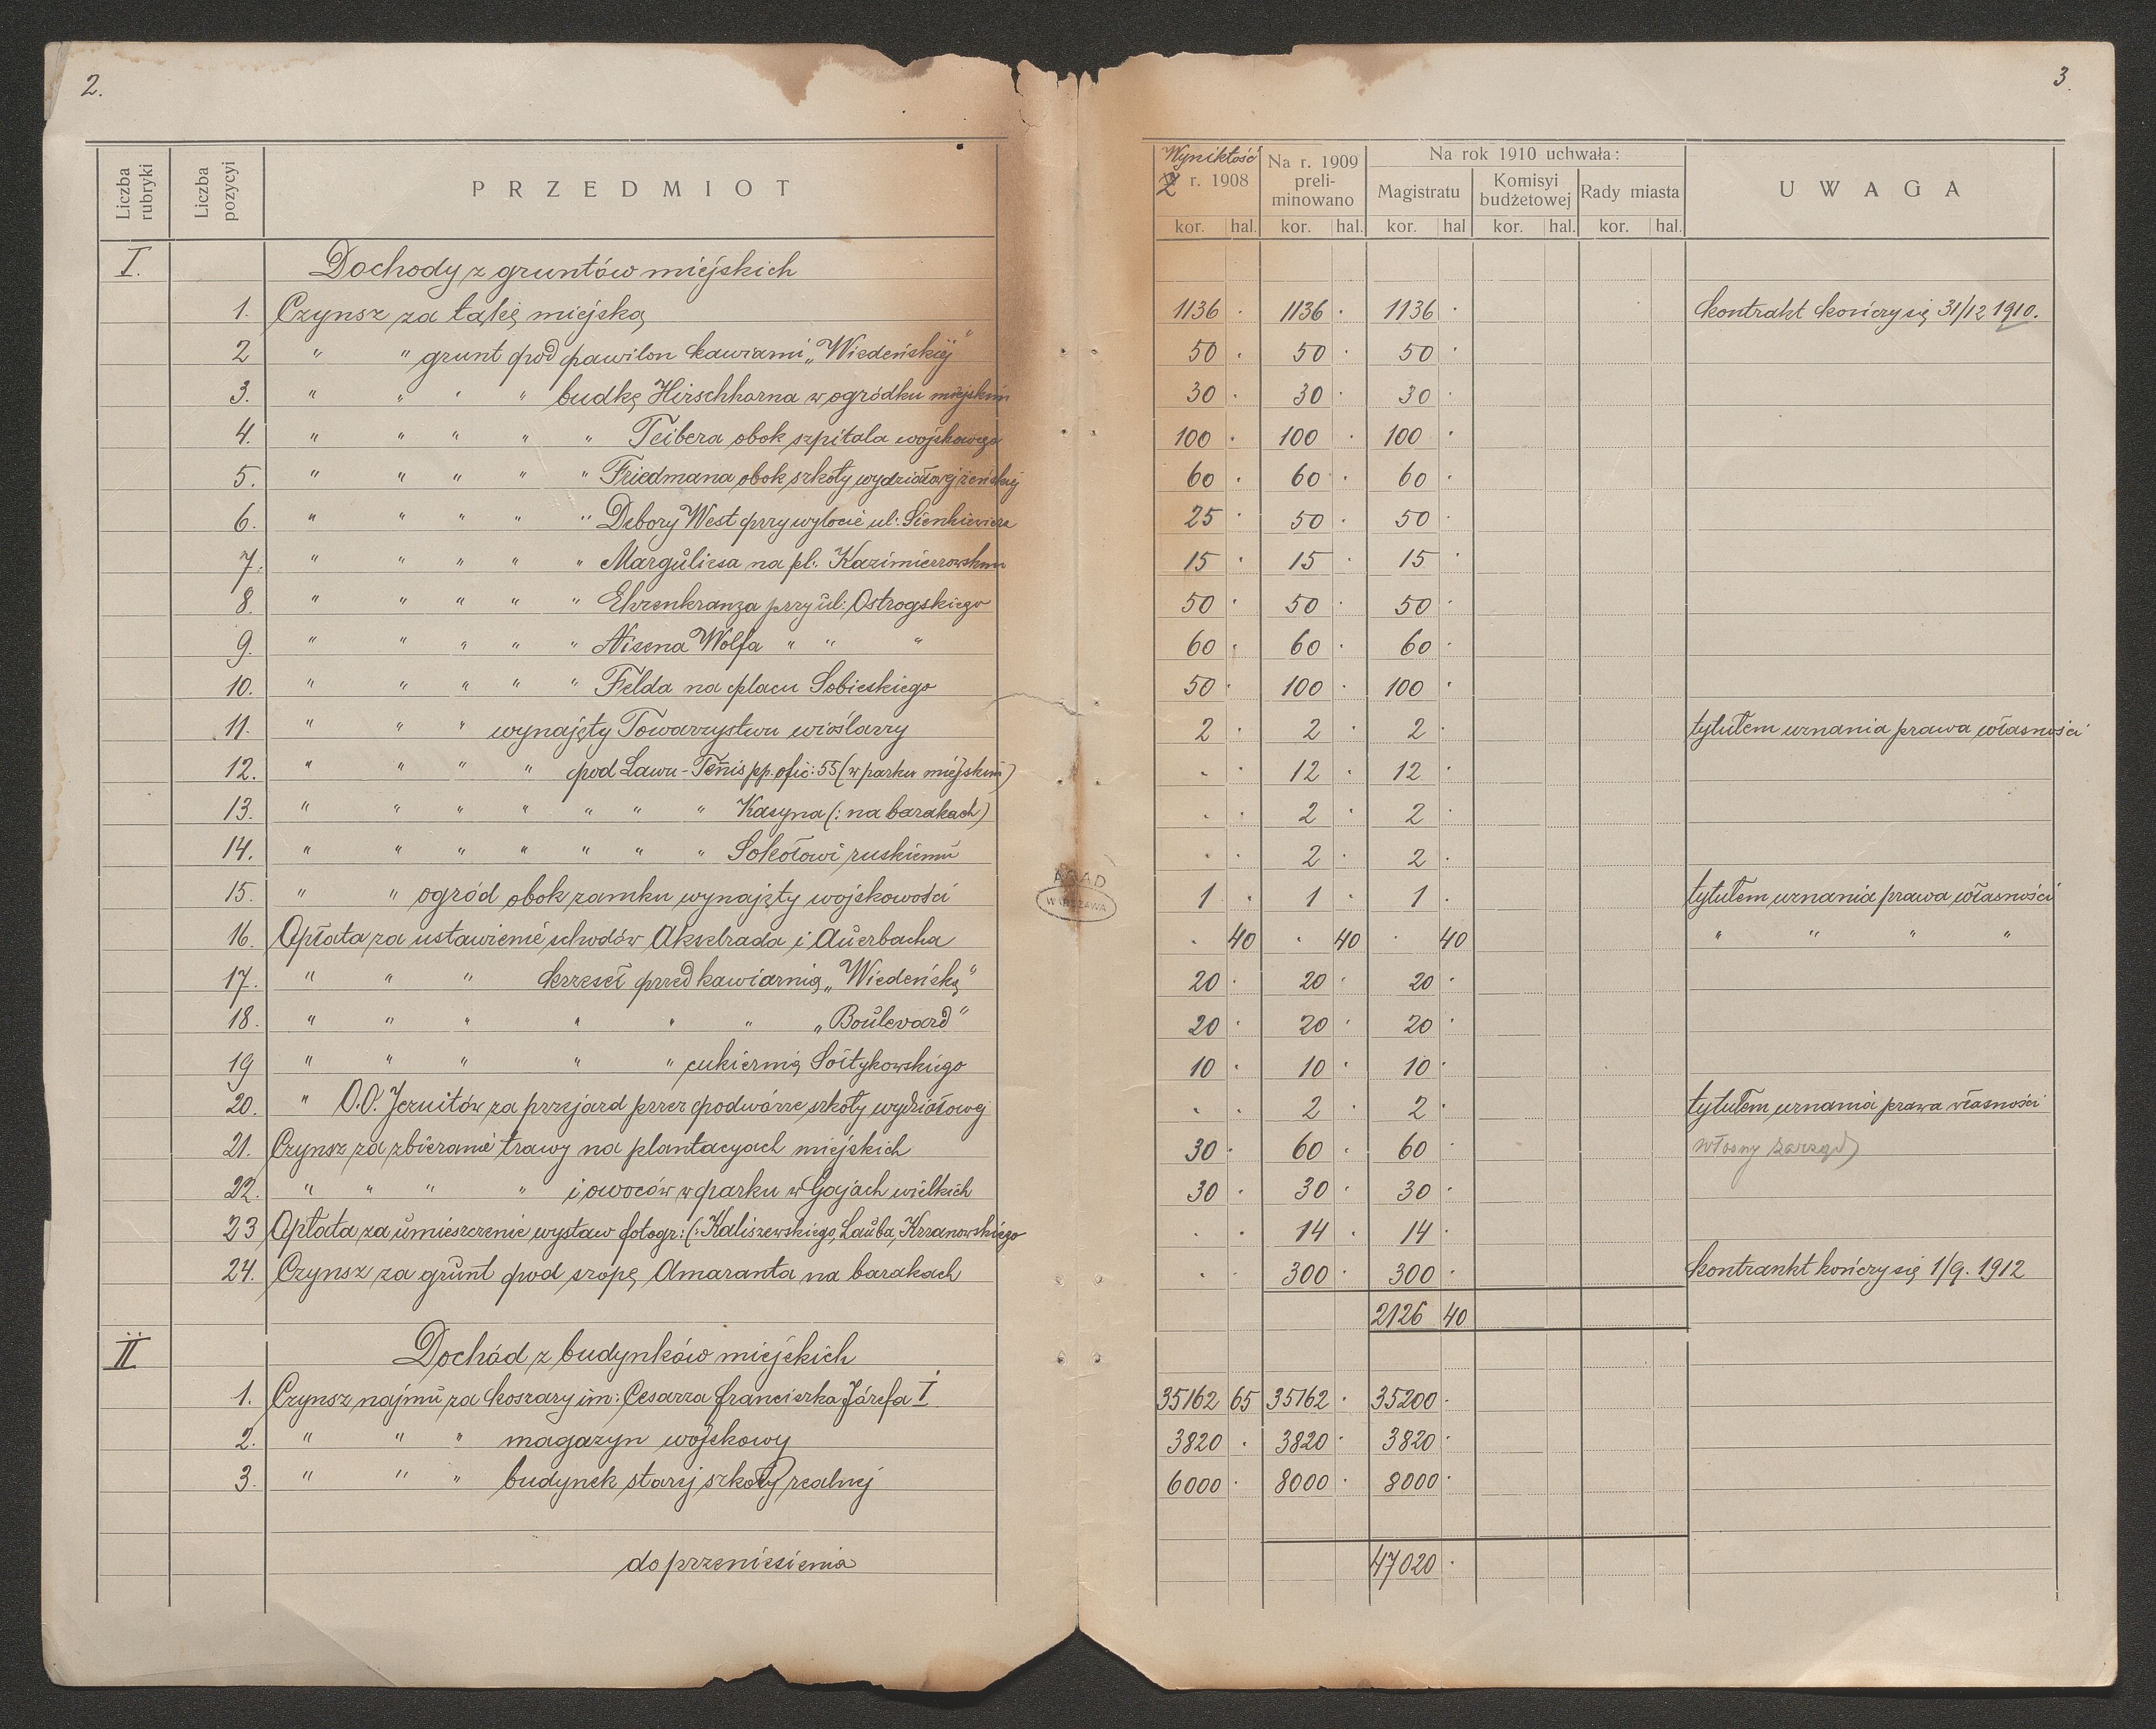 2.
3.
Liczba rubryki
Liczba pozycyi
PRZEDMIOT
Wynikłość Z r. 1908
Na r. 1909 preli- minowano
Na rok 1910 uchwała:
Magistratu
Komisyi budżetowej
Rady miasta
UWAGA
kor. hal. kor. hal. kor. hal kor. hal. kor. hal.
I. Dochody z gruntów miejskich
1. Czynsz za miejską 1136 · 1136 · 1136 · kontrakt kończy się 31/12 1910.
2 " " grunt pod pawilon kawiarni „Wiedeńskiej" 50 · 50 · 50 ·
3. " " " " budkę Hirschhorna w ogródku miejskim 30 · 30 · 30 ·
4. " " " " " Teibera obok szpitala wojskowego 100 · 100 · 100 ·
5. " " " " " Friedmana obok szkoły wydziałowej żeńskiej 60 · 60 · 60 ·
6. " " " " " Debory West przy wylocie ul: Sienkiewicza 25 · 50 · 50 ·
7. " " " " " Margŭliesa na pl: Kazimierzowskim 15 · 15 · 15 ·
8. " " " " " Ehrenkranza przy ŭl: Ostrogskiego 50 · 50 · 50 ·
9. " " " " " Nisena Wolfa " " " 60 · 60 · 60 ·
10. " " " " " Felda na placu Sobieskiego 50 · 100 · 100 ·
11. " " " wynajęty Towarzystwu wioślarzy 2 · 2 · 2 · tytułem uznania prawa własności
12. " " " " pod Lawn-Tennis pp. ofic: 55 (w parku miejskim) · · 12 · 12 ·
13. " " " " " " " Kasyna (: na barakach) · · 2 · 2 ·
14. " " " " " " " Sokołowi ruskiemŭ · · 2 · 2 ·
15. " " ogród obok zamku wynajęty wojskowości 1 · 1 · 1 · tytułem uznania prawa własności
16. Opłata za ustawienie schodów Akselrada i Aŭerbacha · 40 · 40 · 40 " " " "
17. " " " krzeseł przed kawiarnią „Wiedeńską" 20 · 20 · 20 ·
18. " " " " " " „Boŭlevard" 20 · 20 · 20 ·
19 " " " " " cukiernią Sołtykowskiego 10 · 10 · 10 ·
20. " O.O. Jezuitów za przejazd przez podwórze szkoły wydziałowej · · 2 · 2 · tytułem uznania prawa własności
21. Czynsz za zbieranie trawy na plantacyach miejskich 30 · 60 · 60 · własny zarząd
22. " " " " i owoców w parku w Gajach wielkich 30 · 30 · 30 ·
23 Opłata za ŭmieszczenie wystaw fotogr: (: Kaliszewskiego, Laŭba, Krzanowskiego · · 14 · 14 ·
24. Czynsz za grŭnt pod szopę Amaranta na barakach · · 300 · 300 · kontrankt kończy się 1/9. 1912
2126 40
II Dochód z budynków miejskich
1. Czynsz najmŭ za koszary im: Cesarza Franciszka Józefa I 35162 65 35162 · 35200 ·
2. " " " magazyn wojskowy 3820 · 3820 · 3820 ·
3. " " " budynek starej szkoły realnej 6000 · 8000 · 8000 ·
do przeniesienia 47020 ·
AGAD
WARSZAWA